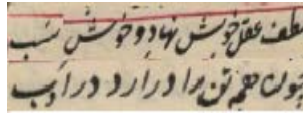 لطف عقل خوش نهاد و خوش نسب
چون همه تن را درآرد در ادب